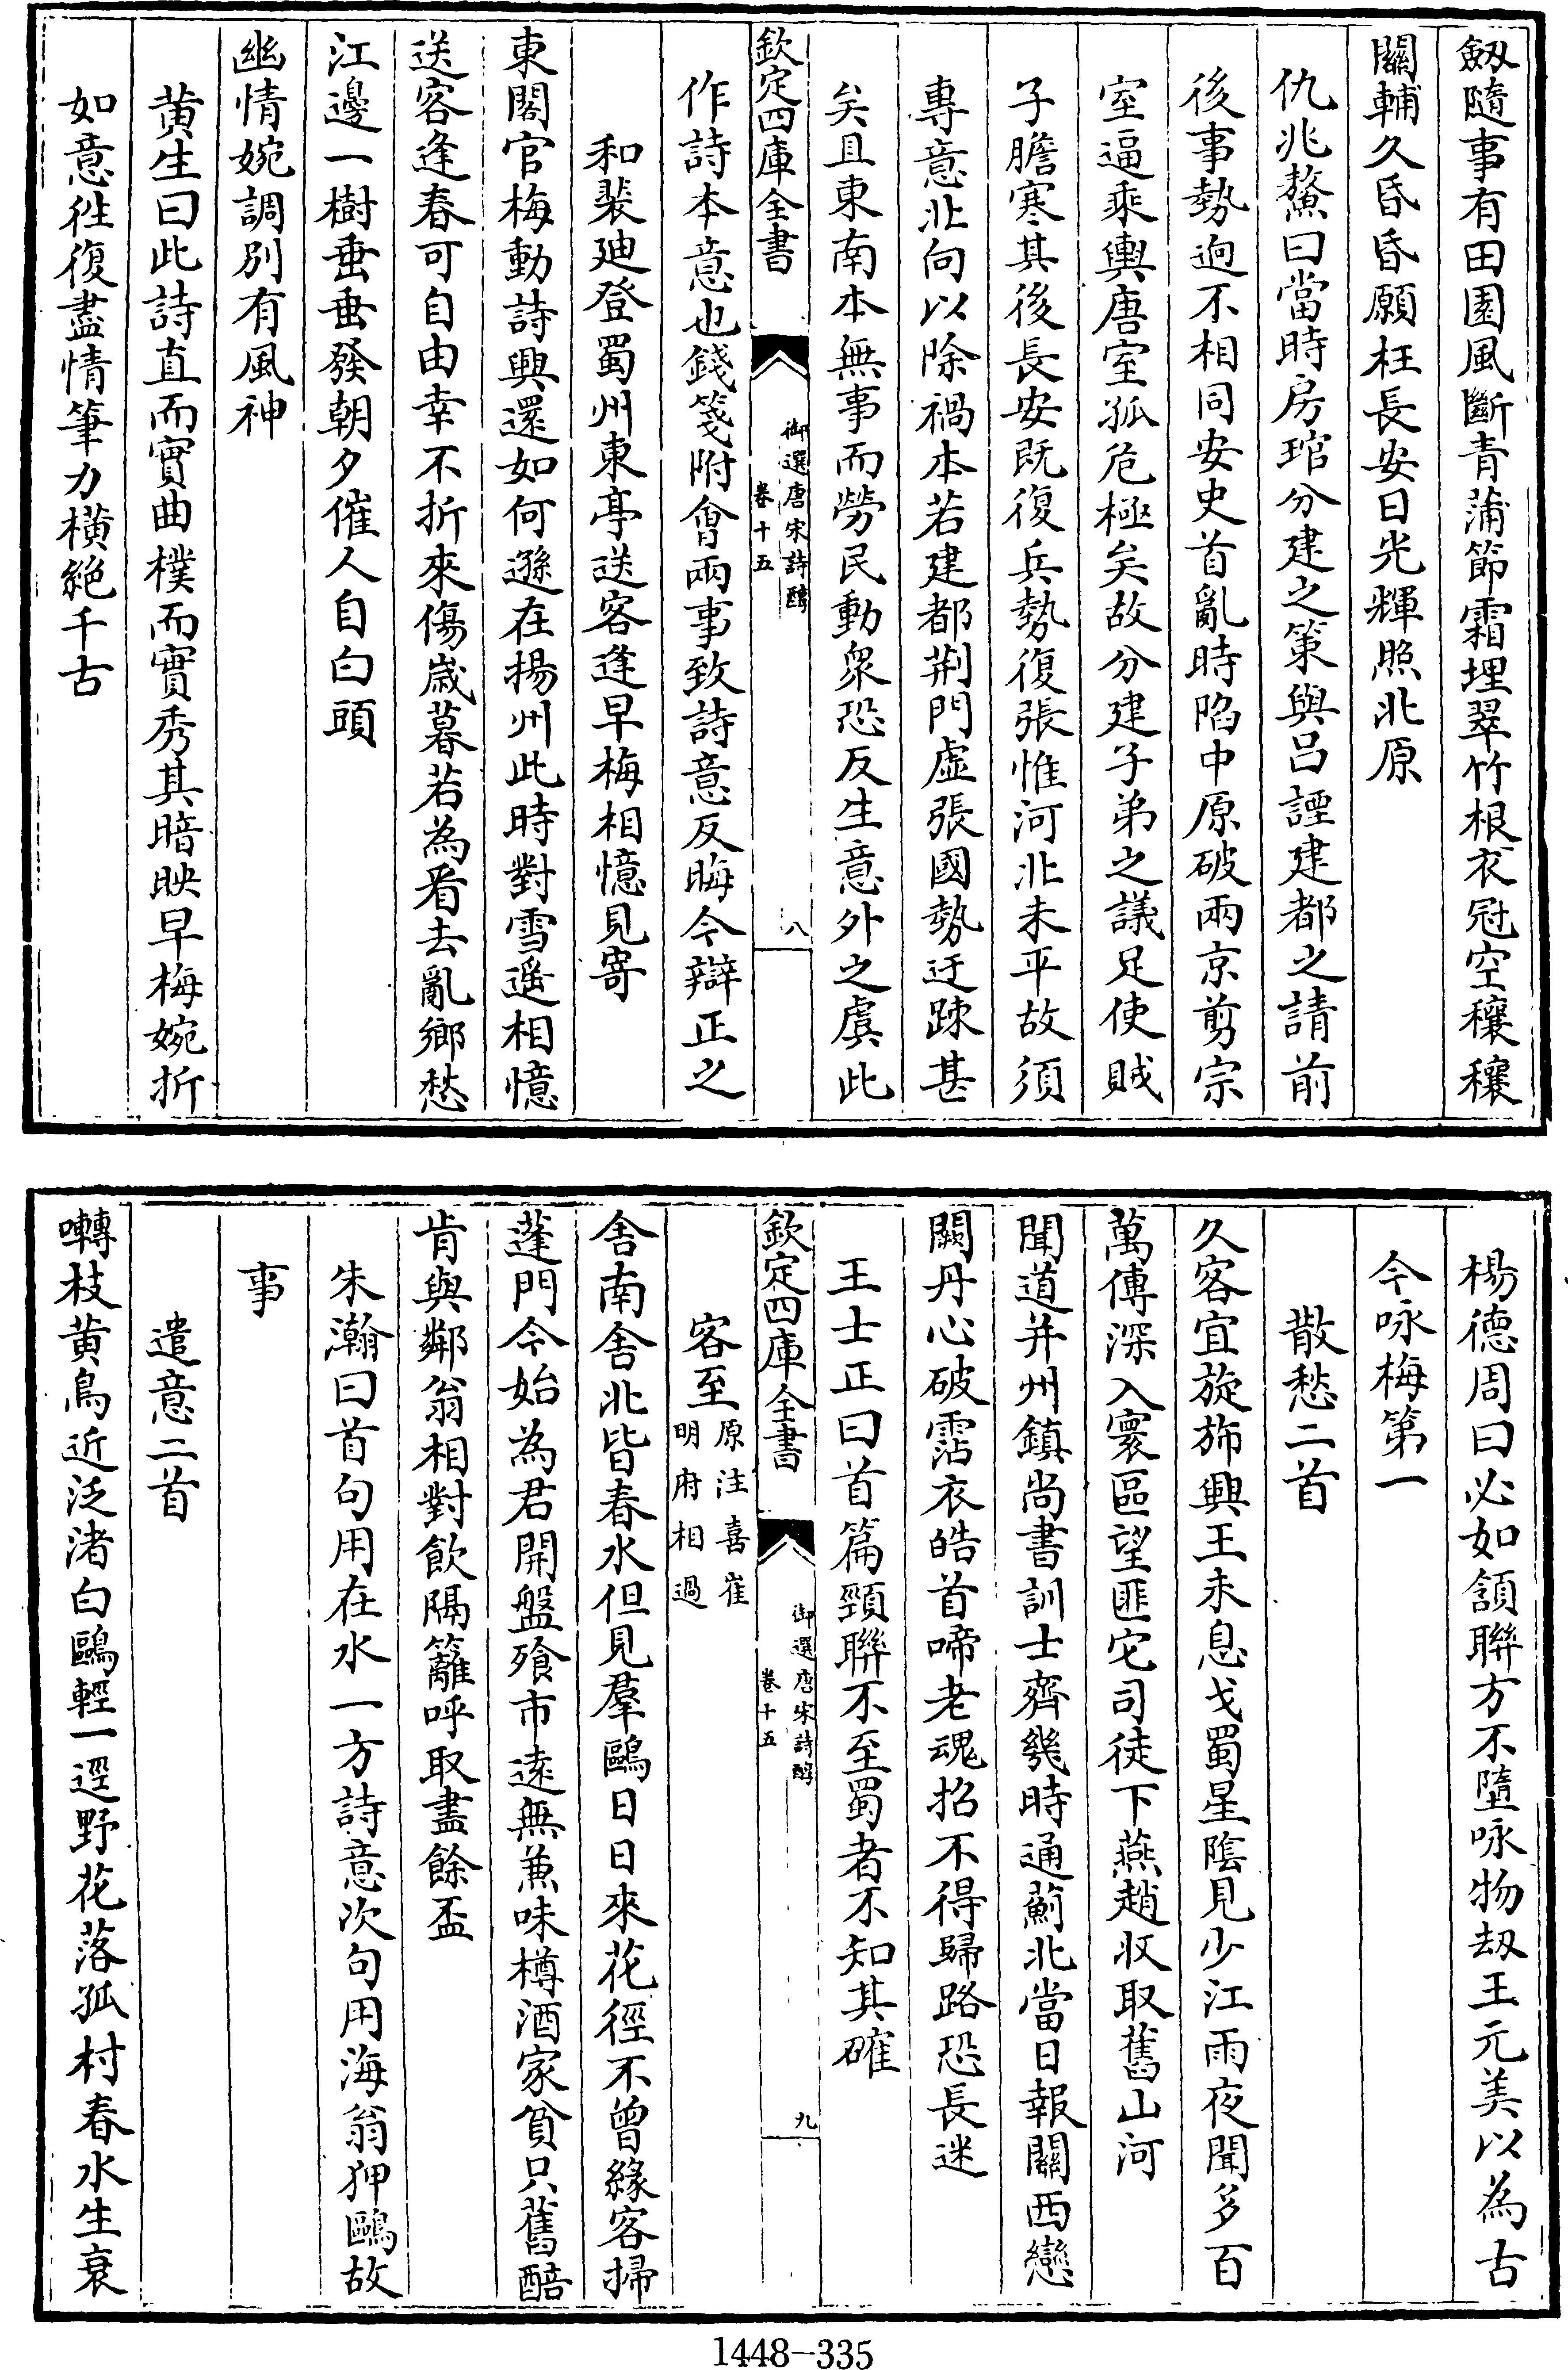 劔隨事有田園風斷青蒲節霜埋翠竹根衣冠空穰穰
關輔久昏昏願枉長安日光輝照北原
仇兆鰲曰當時房琯分建之策與呂諲建都之請前
後事勢逈不相同安史首亂時陷中原破兩京剪宗
室逼乘輿唐室孤危極矣故分建子弟之議足使賊
子膽寒其後長安既復兵勢復張惟河北未平故須
專意北向以除禍本若建都荆門虛張國勢迂踈甚
矣且東南本無事而勞民動衆恐反生意外之虞此
欽定四庫全書
御選唐宋詩醇
卷十五
八
作詩本意也錢箋附會兩事致詩意反晦今辯正之
和裴廸登蜀州東亭送客逢早梅相憶見寄
東閣官梅動詩興還如何遜在揚州此時對雪遥相憶
送客逢春可自由幸不折來傷歲暮若為看去亂鄉愁
江邊一樹垂垂發朝夕催人自白頭
幽情婉調別有風神
黄生曰此詩直而實曲樸而實秀其暗映早梅婉折
如意徃復盡情筆力橫絶千古
楊德周曰必如頷聯方不墮咏物刼王元美以為古
今咏梅第一
散愁二首
久客宜旋斾興王未息戈蜀星隂見少江雨夜聞多百
萬傳深入寰區望匪它司徒下燕趙収取舊山河
聞道并州鎮尚書訓士齊幾時通薊北當日報關西戀
闕丹心破霑衣皓首啼老魂招不得歸路恐長迷
王士正曰首篇頸聯不至蜀者不知其確
欽定四庫全書
御選唐宋詩醇
卷十五
九
客至原注喜崔
明府相過
舍南舍北皆春水但見羣鷗日日來花徑不曾緣客掃
蓬門今始為君開盤飱市逺無兼味樽酒家貧只舊醅
肯與鄰翁相對飲隔籬呼取盡餘盃
朱瀚曰首句用在水一方詩意次句用海翁狎鷗故
事
遣意二首
囀枝黄鳥近泛渚白鷗輕一逕野花落孤村春水生衰
1448-335